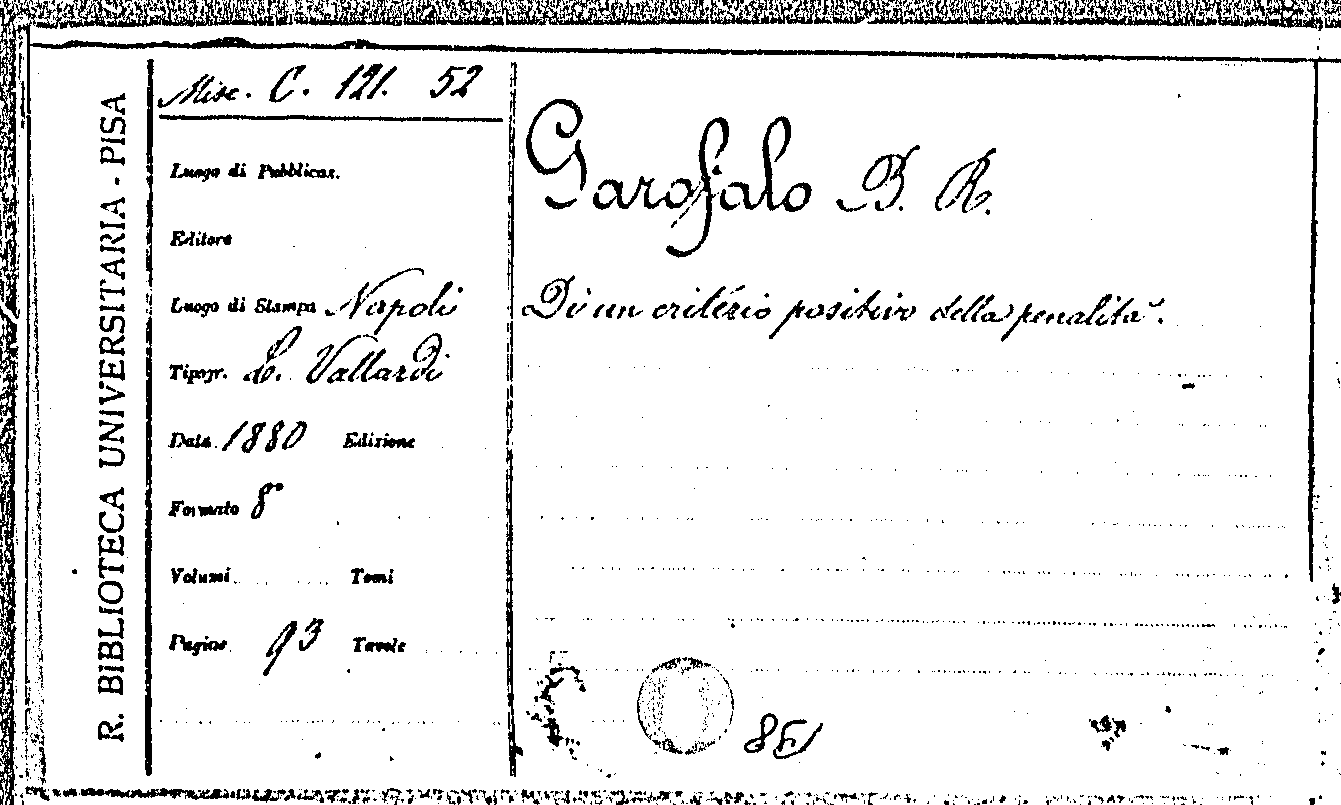 R. BIBLIOTECA UNIVERSITARIA - PISA
Misc. C. 121. 52
Luogo di Pubblicaz.
Editore
Luogo di Stampa Napoli
Tipogr. L. Vallardi
Data 1880 Edizione
Formato 8°
Volumi Tomi
Pagine 93 Tavole
Garofalo B. R.
Di un critério positivo della penalità.